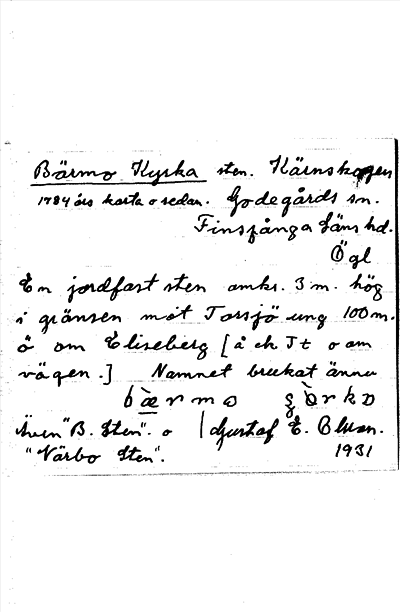 Bärmo Kyrka sten. Kärnskogen
1784 års karta o sedan. Godegårds sn.
Finspånga Läns hd.
Ögl
En jordfast sten omkr. 3 m. hög
i gränsen mot Torsjö ung 100 m.
ö om Eliseberg [ä ek Jt o om
vägen.] Namnet brukat ännu
bærmo
Även "B. Sten". o Gustaf E. Olsson.
"Värbo Sten". 1931